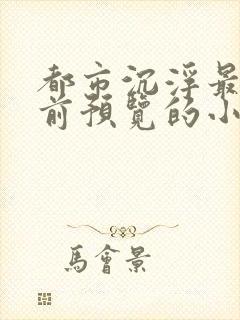 都市沉浮最
前預覽的小
馬會景